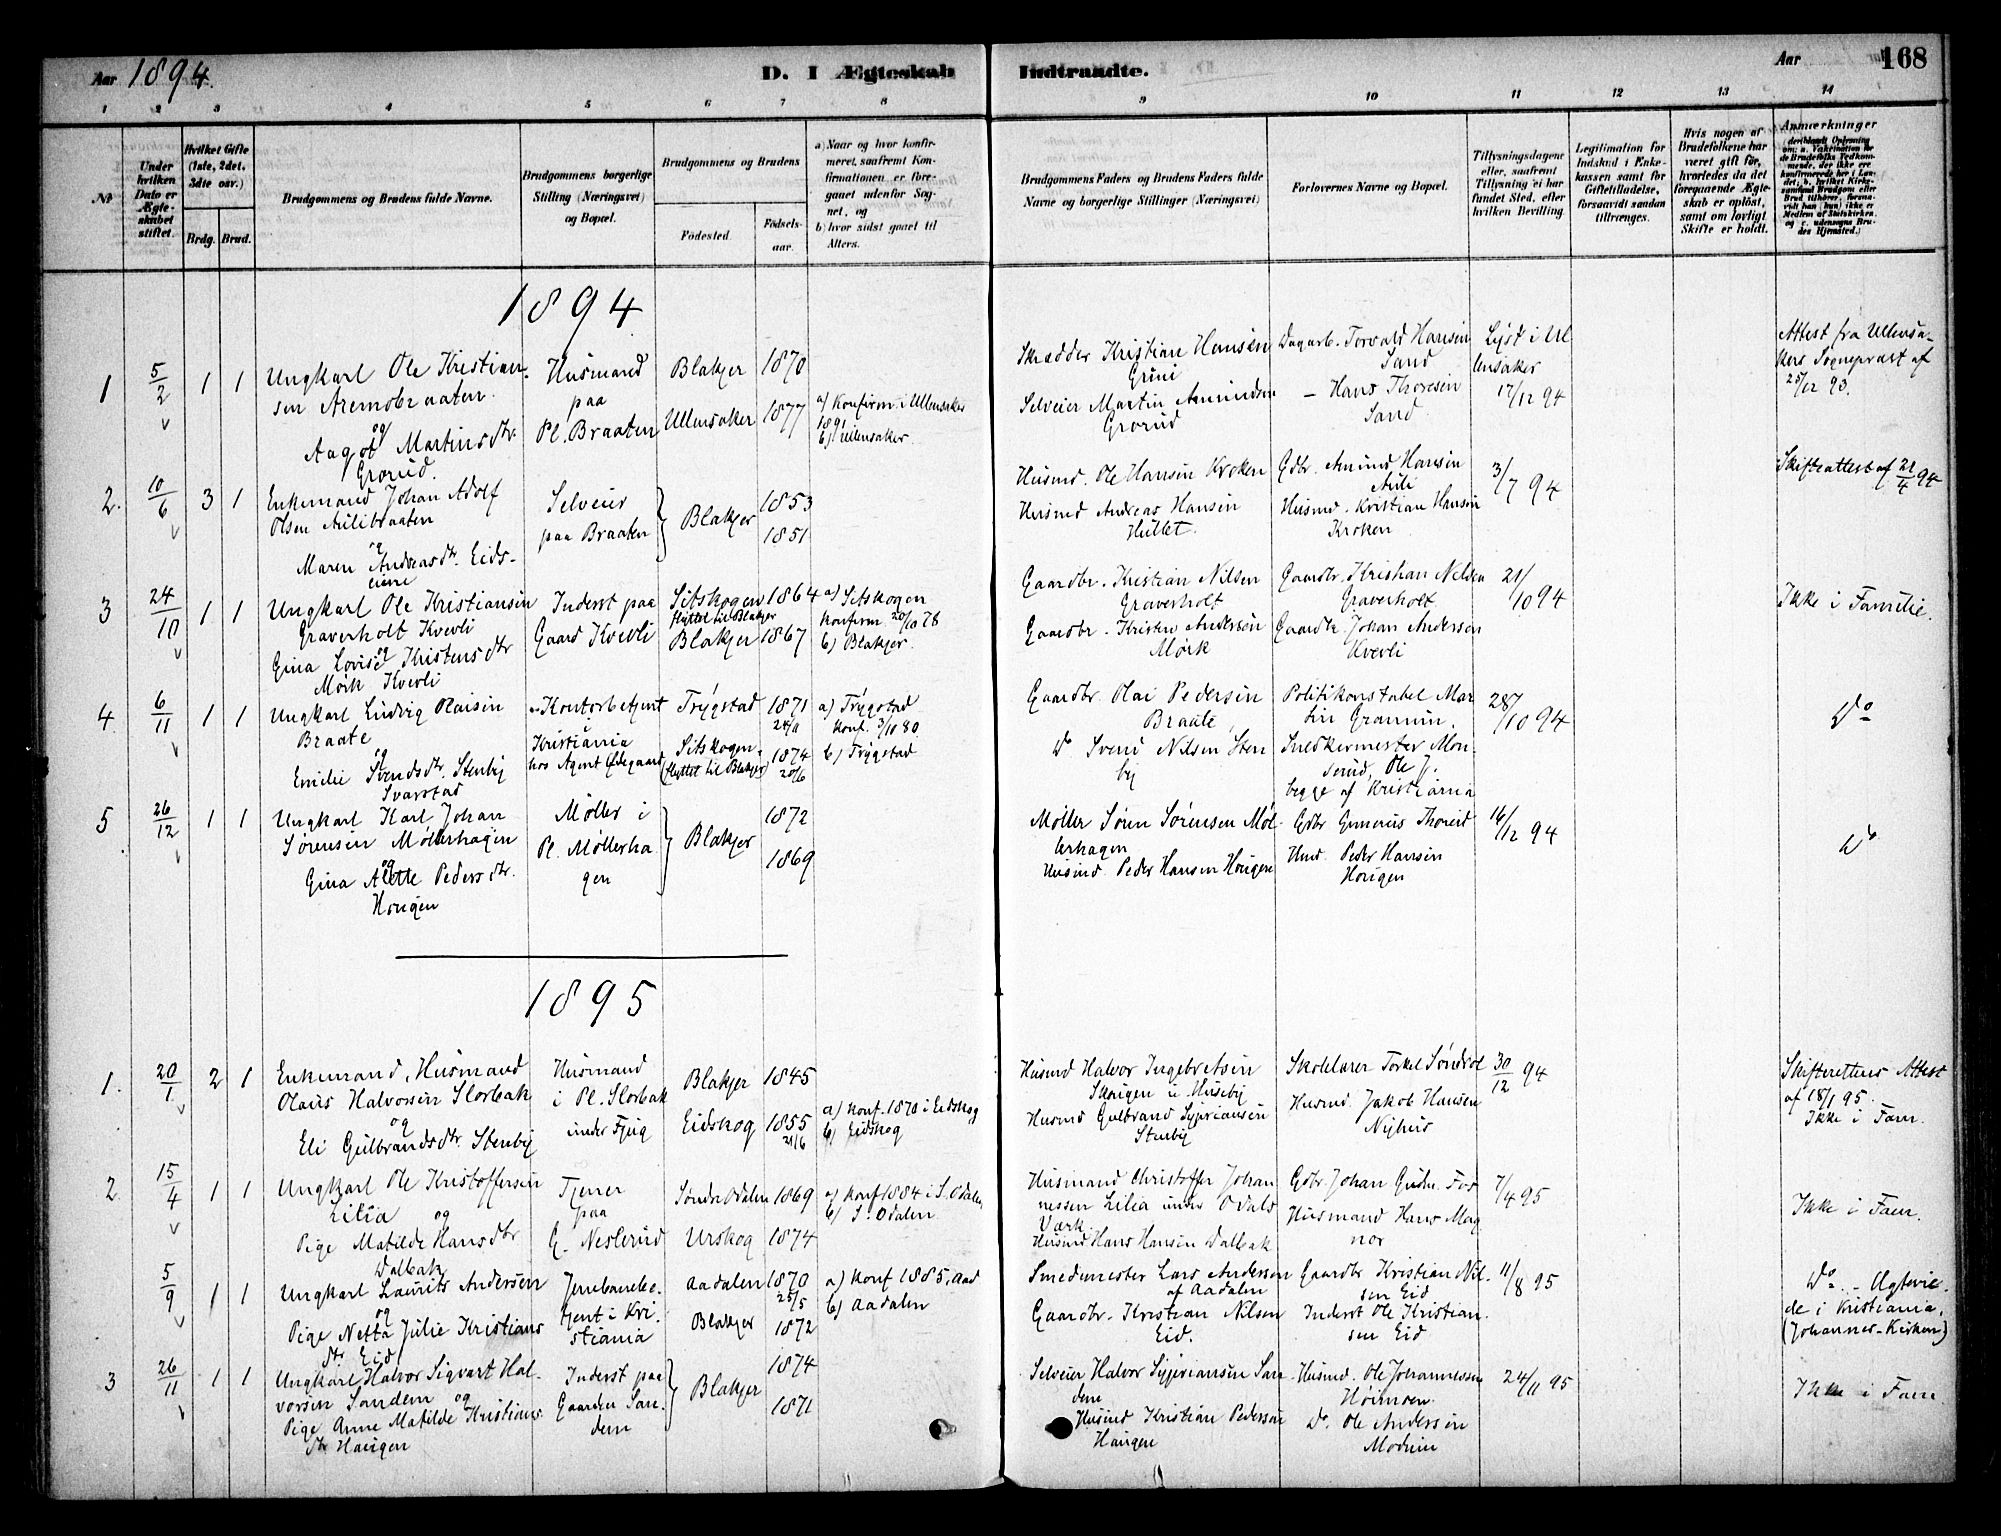 Aar 1894.
D. I Ægteskab Indtraadte.
Aar 168
1 2 3 4 5 6 7 8 9 10 11 12 13 14
№
Under hvilken Dato er Ægteskabet stiftet.
Hvilket Gifte (1ste, 2det, 3dte osv.)
Brdg. Brud.
Brudgommens og Brudens fulde Navne.
Brudgommens borgerlige Stilling (Næringsvei) og Bopæl.
Brudgommens og Brudens
Fødested.
Fødselsaar.
a) Naar og hvor konfirmeret, saafremt Konfirmationen er foregaaet udenfor Sognet, og
b) hvor sidst gaaet til Alters.
Brudgommens Faders og Brudens Faders fulde Navne og borgerlige Stillinger (Næringsvei)
Forlovernes Navne og Bopæl.
Tillysningsdagene eller, saafremt Tillysning ei har fundet Sted, efter hvilken Bevilling.
Legitimation for Indskud i Enkekassen samt for Giftetilladelse, forsaavidt saadan tiltrænges.
Hvis nogen af Brudefolkene har været gift før, hvorledes da det foregaaende Ægteskab er opløst, samt om lovligt Skifte er holdt.
Anmærkninger
1894
1 5/2 1 1
Ungkarl Ole Kristiansen Aremobraaten
og
Aagot Martinsdtr. Grorud.
Husmand paa Pl. Braaten
Blakjer 1870
Ullensaker 1877
a) Konfirm. i Ullensaker 1891
b) Ullensaker.
Skrædder Kristian Hansen Grini
Selveier Martin Amundsen Grorud
Dagarb. Torvald Hansen Sand
– Hans Thoresen Sand
Lyst i Ullensaker 17/12 94
Attest fra Ullensakers Sogneprest af 25/12 93.
2. 10/6 3 1
Enkemand Johan Adolf Olsen Aulibraaten
og
Maren Andreasdtr. Eids-
Selveier paa Braaten
Blakjer
1853
1851
Husmd. Ole Hansen Kroken
Husmd Andreas Hansen Hullet.
Gdbr. Amund Hansen Auli
Husmd. Kristian Hansen Kroken
3/7 94
Skifteattest af 21/4 94
3 24/10 1 1
Ungkarl Ole Kristiansen Graverholt Kvevli
og
Gina Lovise Kristensdtr Mørk Kvevli
Inderst paa Gaard Kvevli
Sitskogen flyttet til Blakjer 1864
Blakjer 1867
a) Sitskogen konfirm 20/10 78
b) Blakjer.
Gaardbr. Kristian Nilsen Graverholt
Gaardbr. Kristen Andersen Mørk
Gaardbr. Kristian Nilsen Graverholt
Gaardb. Johan Andersen Kvevli
21/10 94
Ikke i Familie.
4 6/11 1 1
Ungkarl Ludvig Olaisen Braate
og
Emilie Svendsdtr. Stenby Svarstad
Kontorbetjent i Kristiania hos Agent Ødegaard
Trygstad 1871
Sitskogen. (flyttet til Blakjer) 1874 20/6
a) Trygstad konf. 3/10 80
b) Trygstad
Gaardbr. Olai Pedersen Braate,
Do Svend Nilsen Stenby
Politikonstabel Martin
Snedkermester Monserud, Ole J.
begge af Kristiania
28/10 94
Do
5 26/12 1 1
Ungkarl Karl Johan Sørensen Møllerhagen
og
Gina Alette Pedersdtr. Horigen
Møller i Pl. Møllerhagen
Blakjer
1872
1869
Møller Søren Sørensen Møllerhagen
Husmd. Peder Hansen Horigen
Gdbr Gunerius Thoreid
Husd. Peder Hansen Horigen
16/12 94
Do
1895
1. 20/1 2 1
Enkemand, Husmand Olaus Halvorsen Slorbak
og
Eli Gulbrandsdtr. Stenby
Husmand i Pl. Slorbak under Fjug
Blakjer 1845
Eidskog 1855 21/6
a) Konf. 1870 i Eidskog
b) Eidskog
Husmd Halvor Ingebretsen Skougen u. Huseby
Husmd Gulbrand Sypriansen Stenby
Skolelærer Torkel Søndrol
Husmd. Jakob Hansen Nyhus
30/12 94
Skifterettens Attest af 18/1 95.
Ikke i Fam.
2 15/4 1 1
Ungkarl Ole Kristoffersen Lilia
og
Pige Matilde Hansdtr Dalbak
Tjener paa G. Neslerud
Søndre Odalen 1869
Urskog 1874
a) Konf 1884 i S. Odalen
b) S. Odalen
Husmand Christoffer Johannessen Lilia under Odals Værk.
Husmd Hans Hansen Dalbak
Gdbr. Johan Gudm. Fos
Husmand Hans Magnor
7/4 95
Ikke i Fam.
5/9 1 1
Ungkarl Laurits Andersen
og
Pige Netta Julie Kristiansdtr Eid
Jernbanebetjent i Kristiania
Aadalen 1870 25/5
Blakjer 1872
a) Konf 1885, Aad
b) Aadalen
Smedmester Lars Andersen af Aadalen
Gaardbr. Kristian Nilsen Eid.
Gaardbr Kristian Nilsen Eid
Inderst Ole Kristiansen Eid
11/8 95
Do. – Ægtvie-
de i Kristiania,
(Johannes-Kirken)
3 26/11 1 1
Ungkarl Halvor Sigvart Halvorsen Sandem og
Pige Anne Matilde Kristiansdtr Haugen
Inderst paa Gaarden Sandem
Blakjer
1874
1871
Selveier Halvor Sypriansen Sandem
Husmd Kristian Pedersen Haugen
Husmd. Ole Johannessen Høimoen.
Do. Ole Andersen
24/11 95
Ikke i Fam